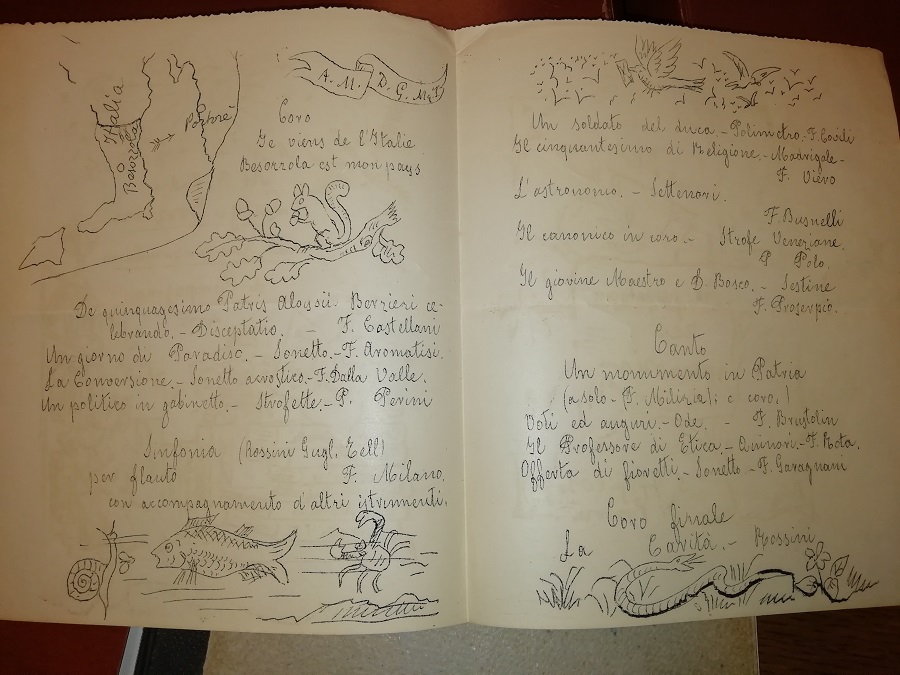 Italia
Besozzola
A. M. D. G. M. et
Coro
Je viens de l'Italie
Besozzola est mon pays
De quinquagesimo Patris Aloysii Borzieri ce-
lebrando. - Disceptatio. - F. Castellani
Un giorno di Paradiso. - Sonetto. - F. Aromatisi.
La Conversione. - Sonetto acrostico. - F. Dalla Valle.
Un politico in gabinetto. - Strofette. - P. Perini
Sinfonia (Rossini Gugl. Tell)
per flauto F. Milano.
con accompagnamento d'altri istrumenti.
Un soldato del duca. - Polimetro. - F.
Il cinquantesimo di Religione. - Madrigale. -
F. Vievo
L'astronomo. - Settenari.
F. Busnelli
Il canonico in coro. - Strofe Veneziane.
P. Polo.
Il giovine Maestro e D. Bosco. - Sestine
F. Proserpio.
Canto
Un monumento in Patria
(a solo - (F. Milizia); e coro.)
Voti ed auguri. - Ode. - F. Brustolin
Il Professore di Etica. - Quinari. - F. Rota.
Offerta di fioretti. - Sonetto. - F. Garagnani
Coro finale
La Carità. - Rossini